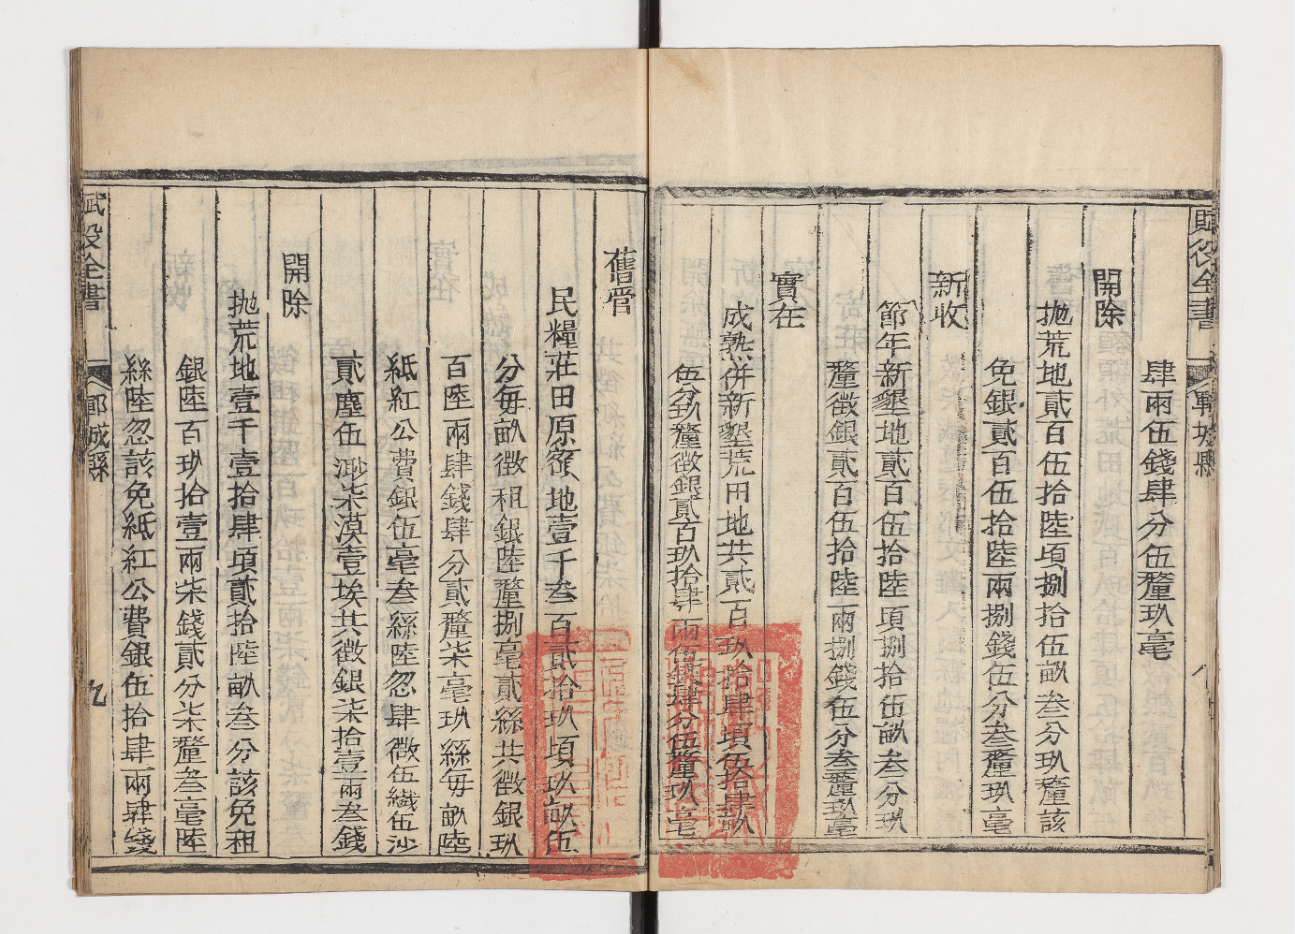 賦役全書
鄆城縣
八
肆兩伍錢肆分伍釐玖毫
開除
拋荒地貳百伍拾陸頃捌拾伍畝叁分玖釐該
免銀貳百伍拾陸兩捌錢伍分叁釐玖毫
新收
節年新墾地貳百伍拾陸頃捌拾伍畝叁分玖
釐徵銀貳百伍拾陸兩捌錢伍分叁釐玖毫
實在
成熟併新墾荒田地共貳百玖拾肆頃伍拾肆畝
伍分玖釐徵銀貳百玖拾肆兩伍錢肆分伍釐玖毫
舊管
民糧莊田原額地壹千叁百貳拾玖頃玖畝伍
分每畝徵租銀陸釐捌毫貳絲共徵銀玖
百陸兩肆錢肆分貳釐柒毫玖絲每畝陸
紙紅公費銀伍毫叁絲陸忽肆微伍纖伍沙
貳塵伍渺柒漠壹埃共徵銀柒拾壹兩叁錢
開除
拋荒地壹千壹拾肆頃貳拾陸畝叁分該免租
銀陸百玖拾壹兩柒錢貳分柒釐叁毫陸
絲陸忽該免紙紅公費銀伍拾肆兩肆錢
賦役全書
鄆城縣
九